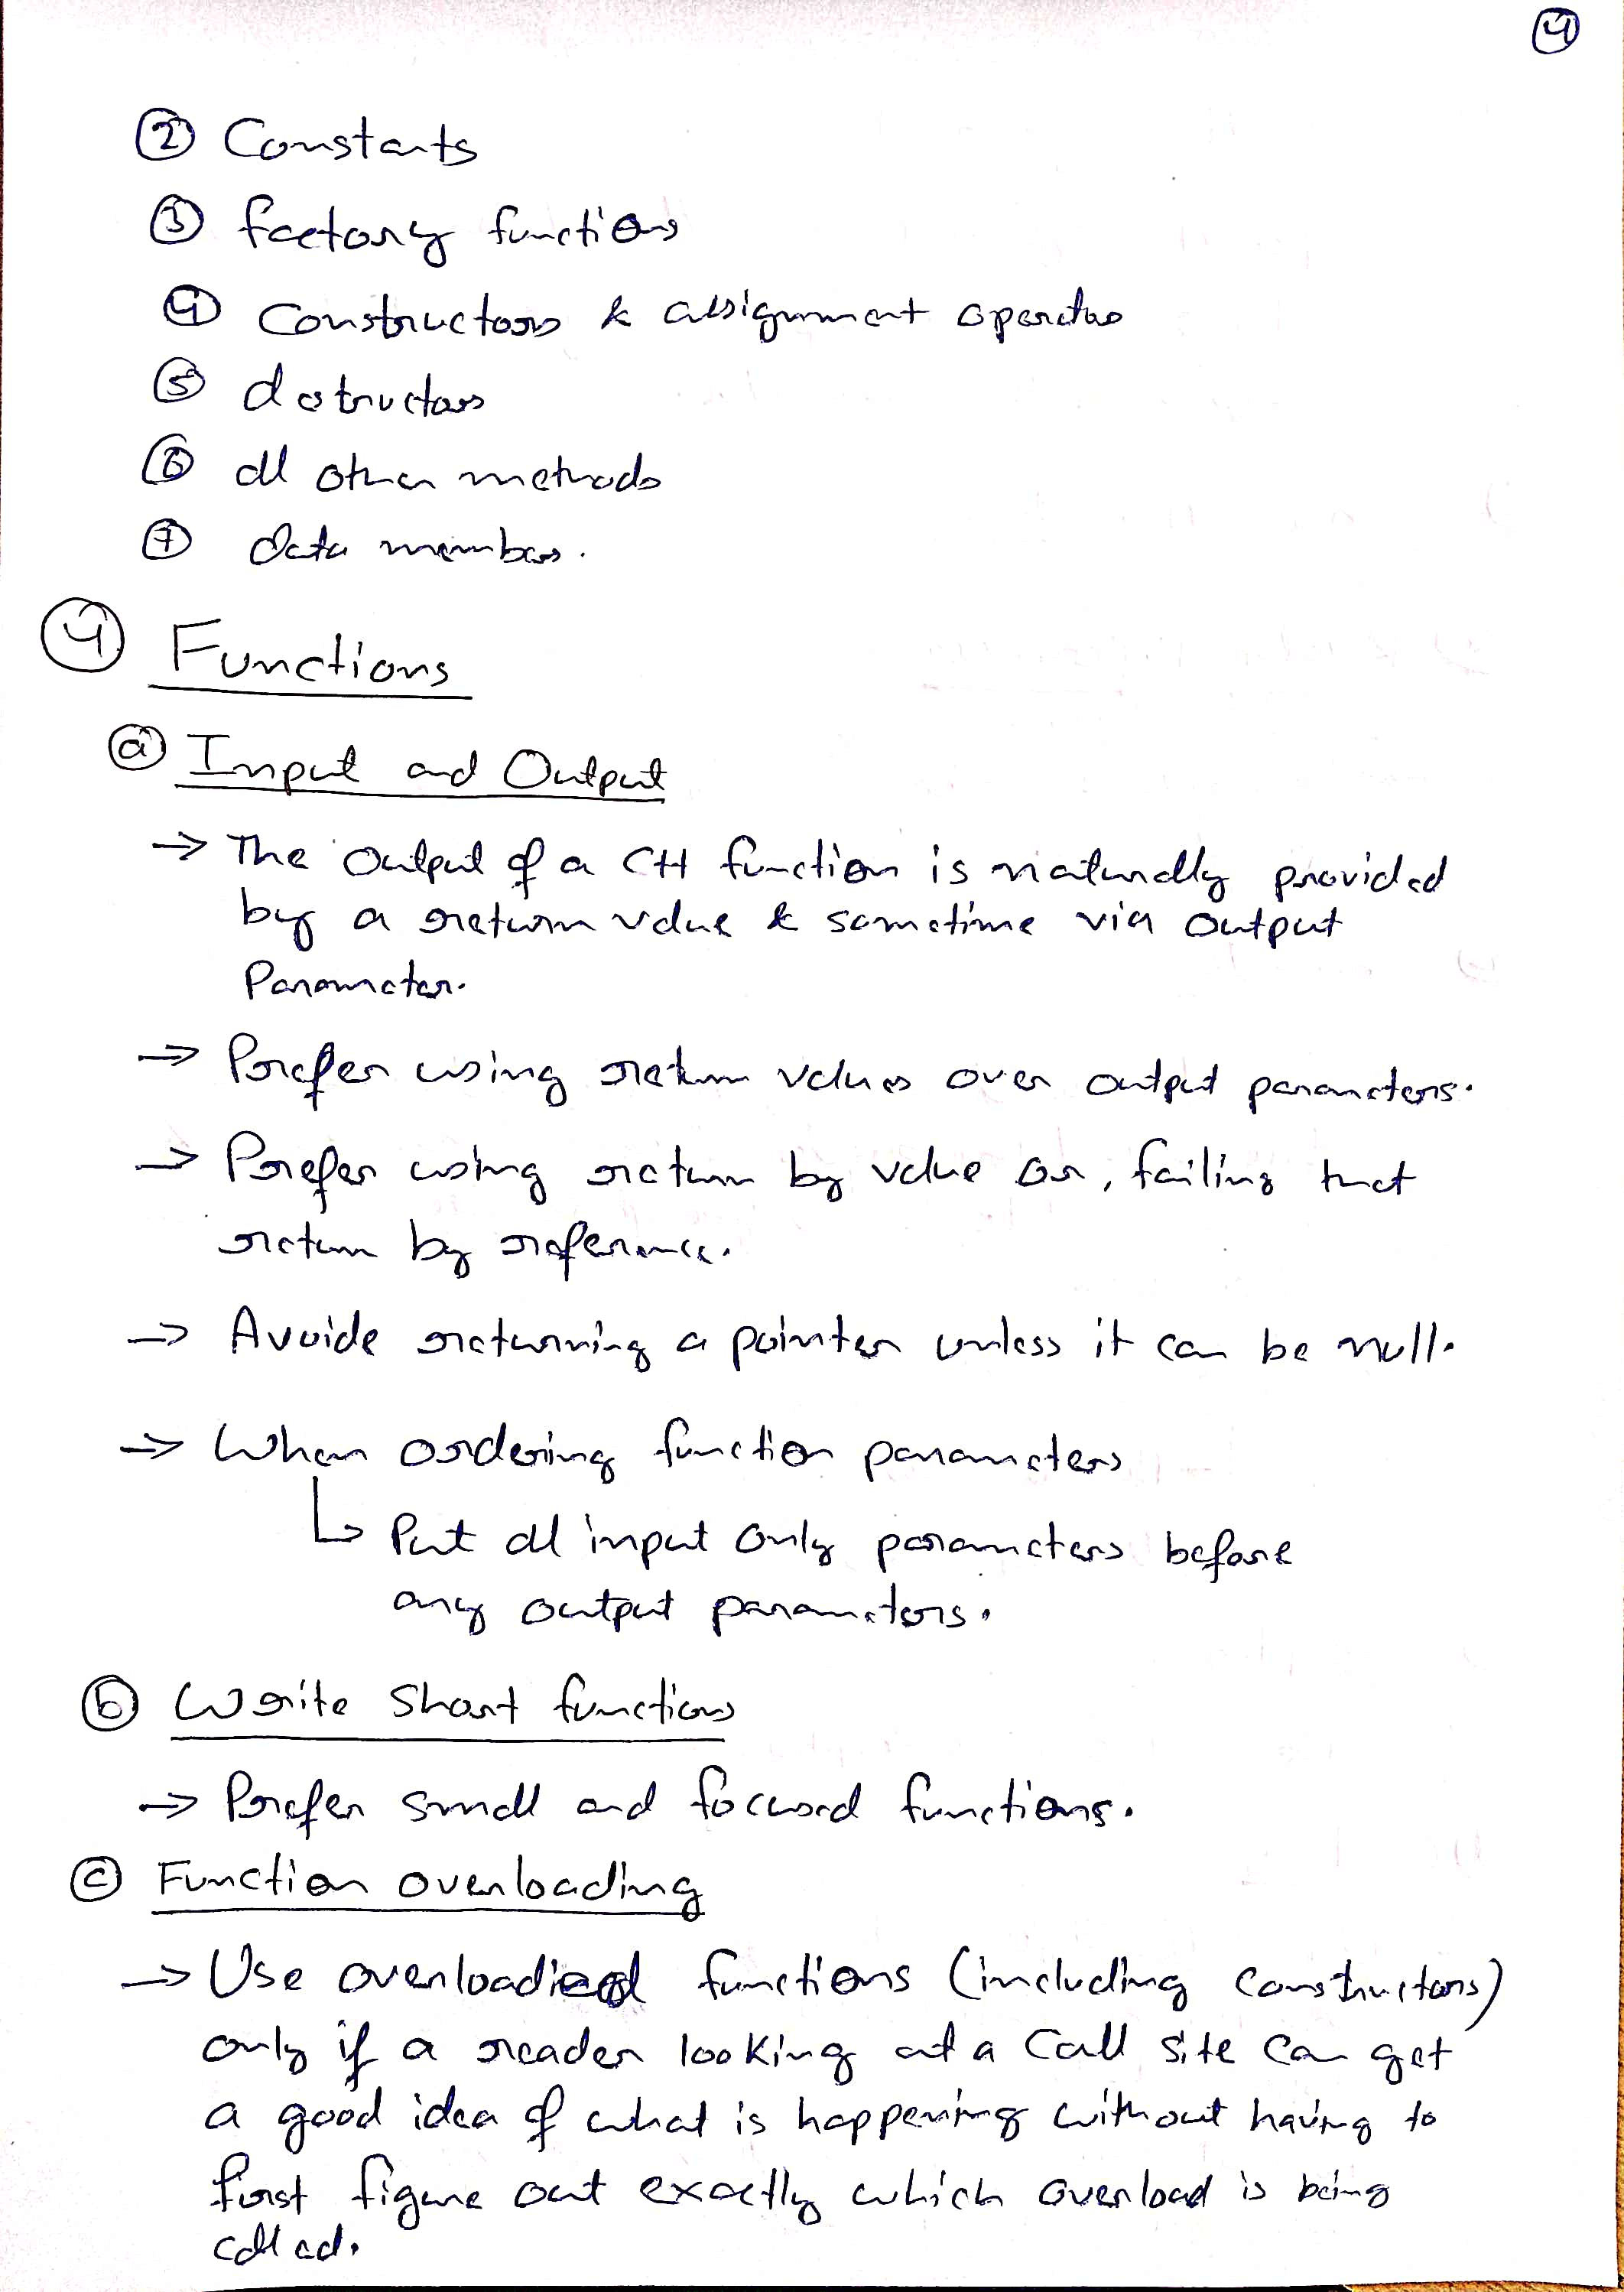 4
② Constants
③ factory functions
④ Constructors & assignment operator
⑤ destructors
⑥ all other methods
⑦ data members.
④ Functions
ⓐ Input and Output
→ The Output of a C++ function is naturally provided
by a return value & sometime via output
Parameter.
→ Prefer using return values over output parameters.
→ Prefer using return by value or, failing that
return by reference.
→ Avoide returning a pointer unless it can be null.
→ When ordering function parameters
↳ Put all input only parameters before
any output parameters.
ⓑ Write Short functions
→ Prefer small and focused functions.
ⓒ Function overloading
→ Use overloaded functions (including constructors)
only if a reader looking at a Call site can get
a good idea of what is happening without having to
first figure out exactly which overload is being
called.